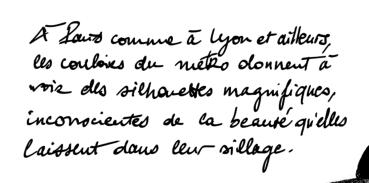 À Paris comme à Lyon et ailleurs,
les couloirs du métro donnent à
voir des silhouettes magnifiques,
inconscientes de la beauté qu'elles
laissent dans leur sillage.